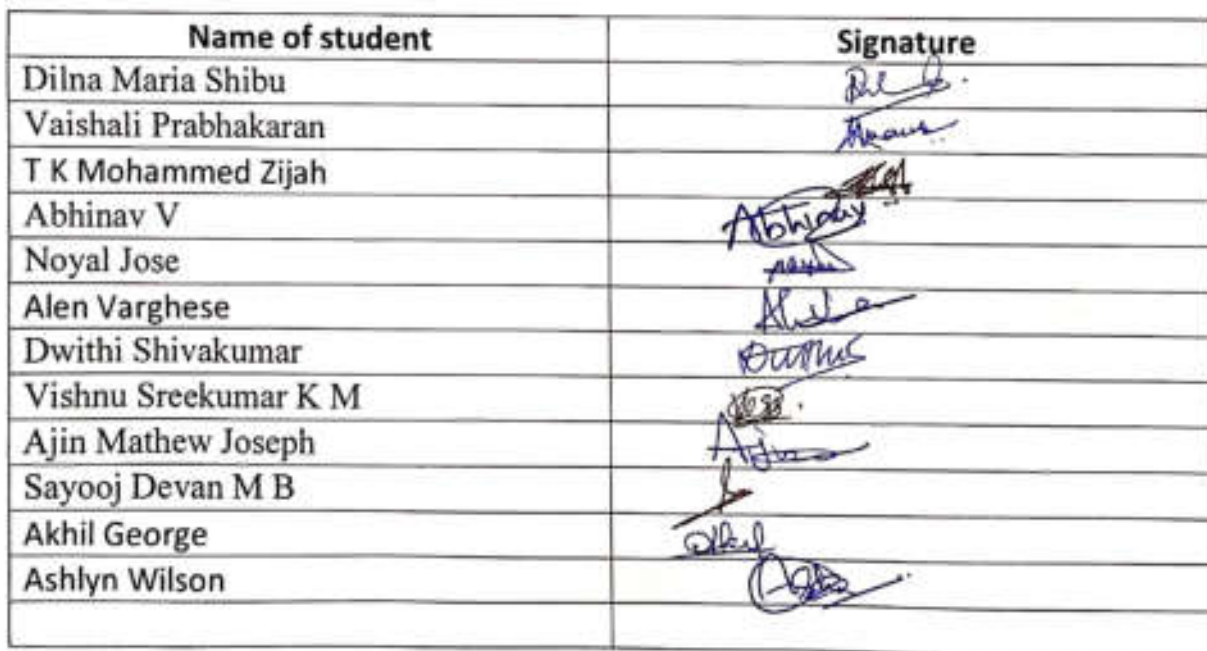 Name of student Signature
Dilna Maria Shibu
Vaishali Prabhakaran
T K Mohammed Zijah
Abhinav V Abhinav
Noyal Jose
Alen Varghese
Dwithi Shivakumar
Vishnu Sreekumar K M
Ajin Mathew Joseph Ajin
Sayooj Devan M B
Akhil George
Ashlyn Wilson